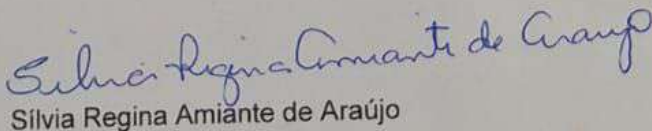 Silvia Regina Amiante de Araujo
Sílvia Regina Amiante de Araújo